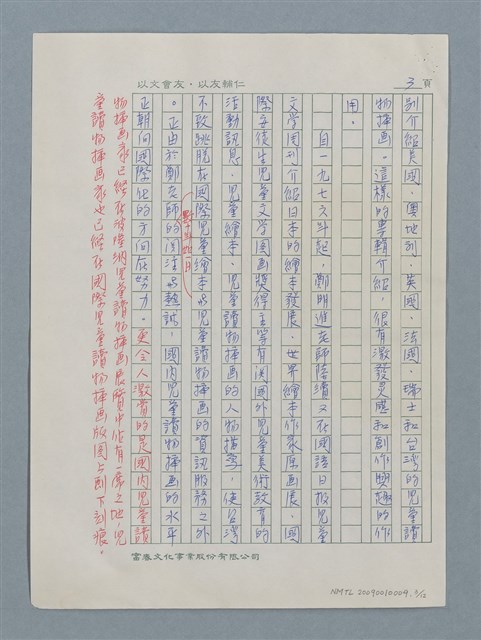 以文會友・以友輔仁
3 頁
別介紹美國、奧地利、英國、法國、瑞士和台灣的兒童讀
物插画。這樣的專輯介紹,很有激發灵感和創作興趣的作
用。
自一九七六年起,鄭明進老師陸續又在國語日報兒童
文學周刊介紹日本的繪本發展、世界繪本作家原画展、國
際安徒生兒童文學图画獎得主等有関國外兒童美術教育的
活動訊息、兒童繪本、兒童讀物插画的人物描寫,使台灣
不致跳脫在國際兒童繪本與兒童讀物插画的資訊服務之外
。正由於鄭老師的関注與熱誠,國內兒童讀物插画的水平
正朝向國際化的方向在努力。更令人激賞的是國內兒童讀
物插画家已經在波隆納兒童讀物插画展覽中佔有一席之地,兒
童讀物插画家也已經在國際兒童讀物插画版圖上劃下刻痕。
富春文化事業股份有限公司
NMTL 20090010009. 3/12